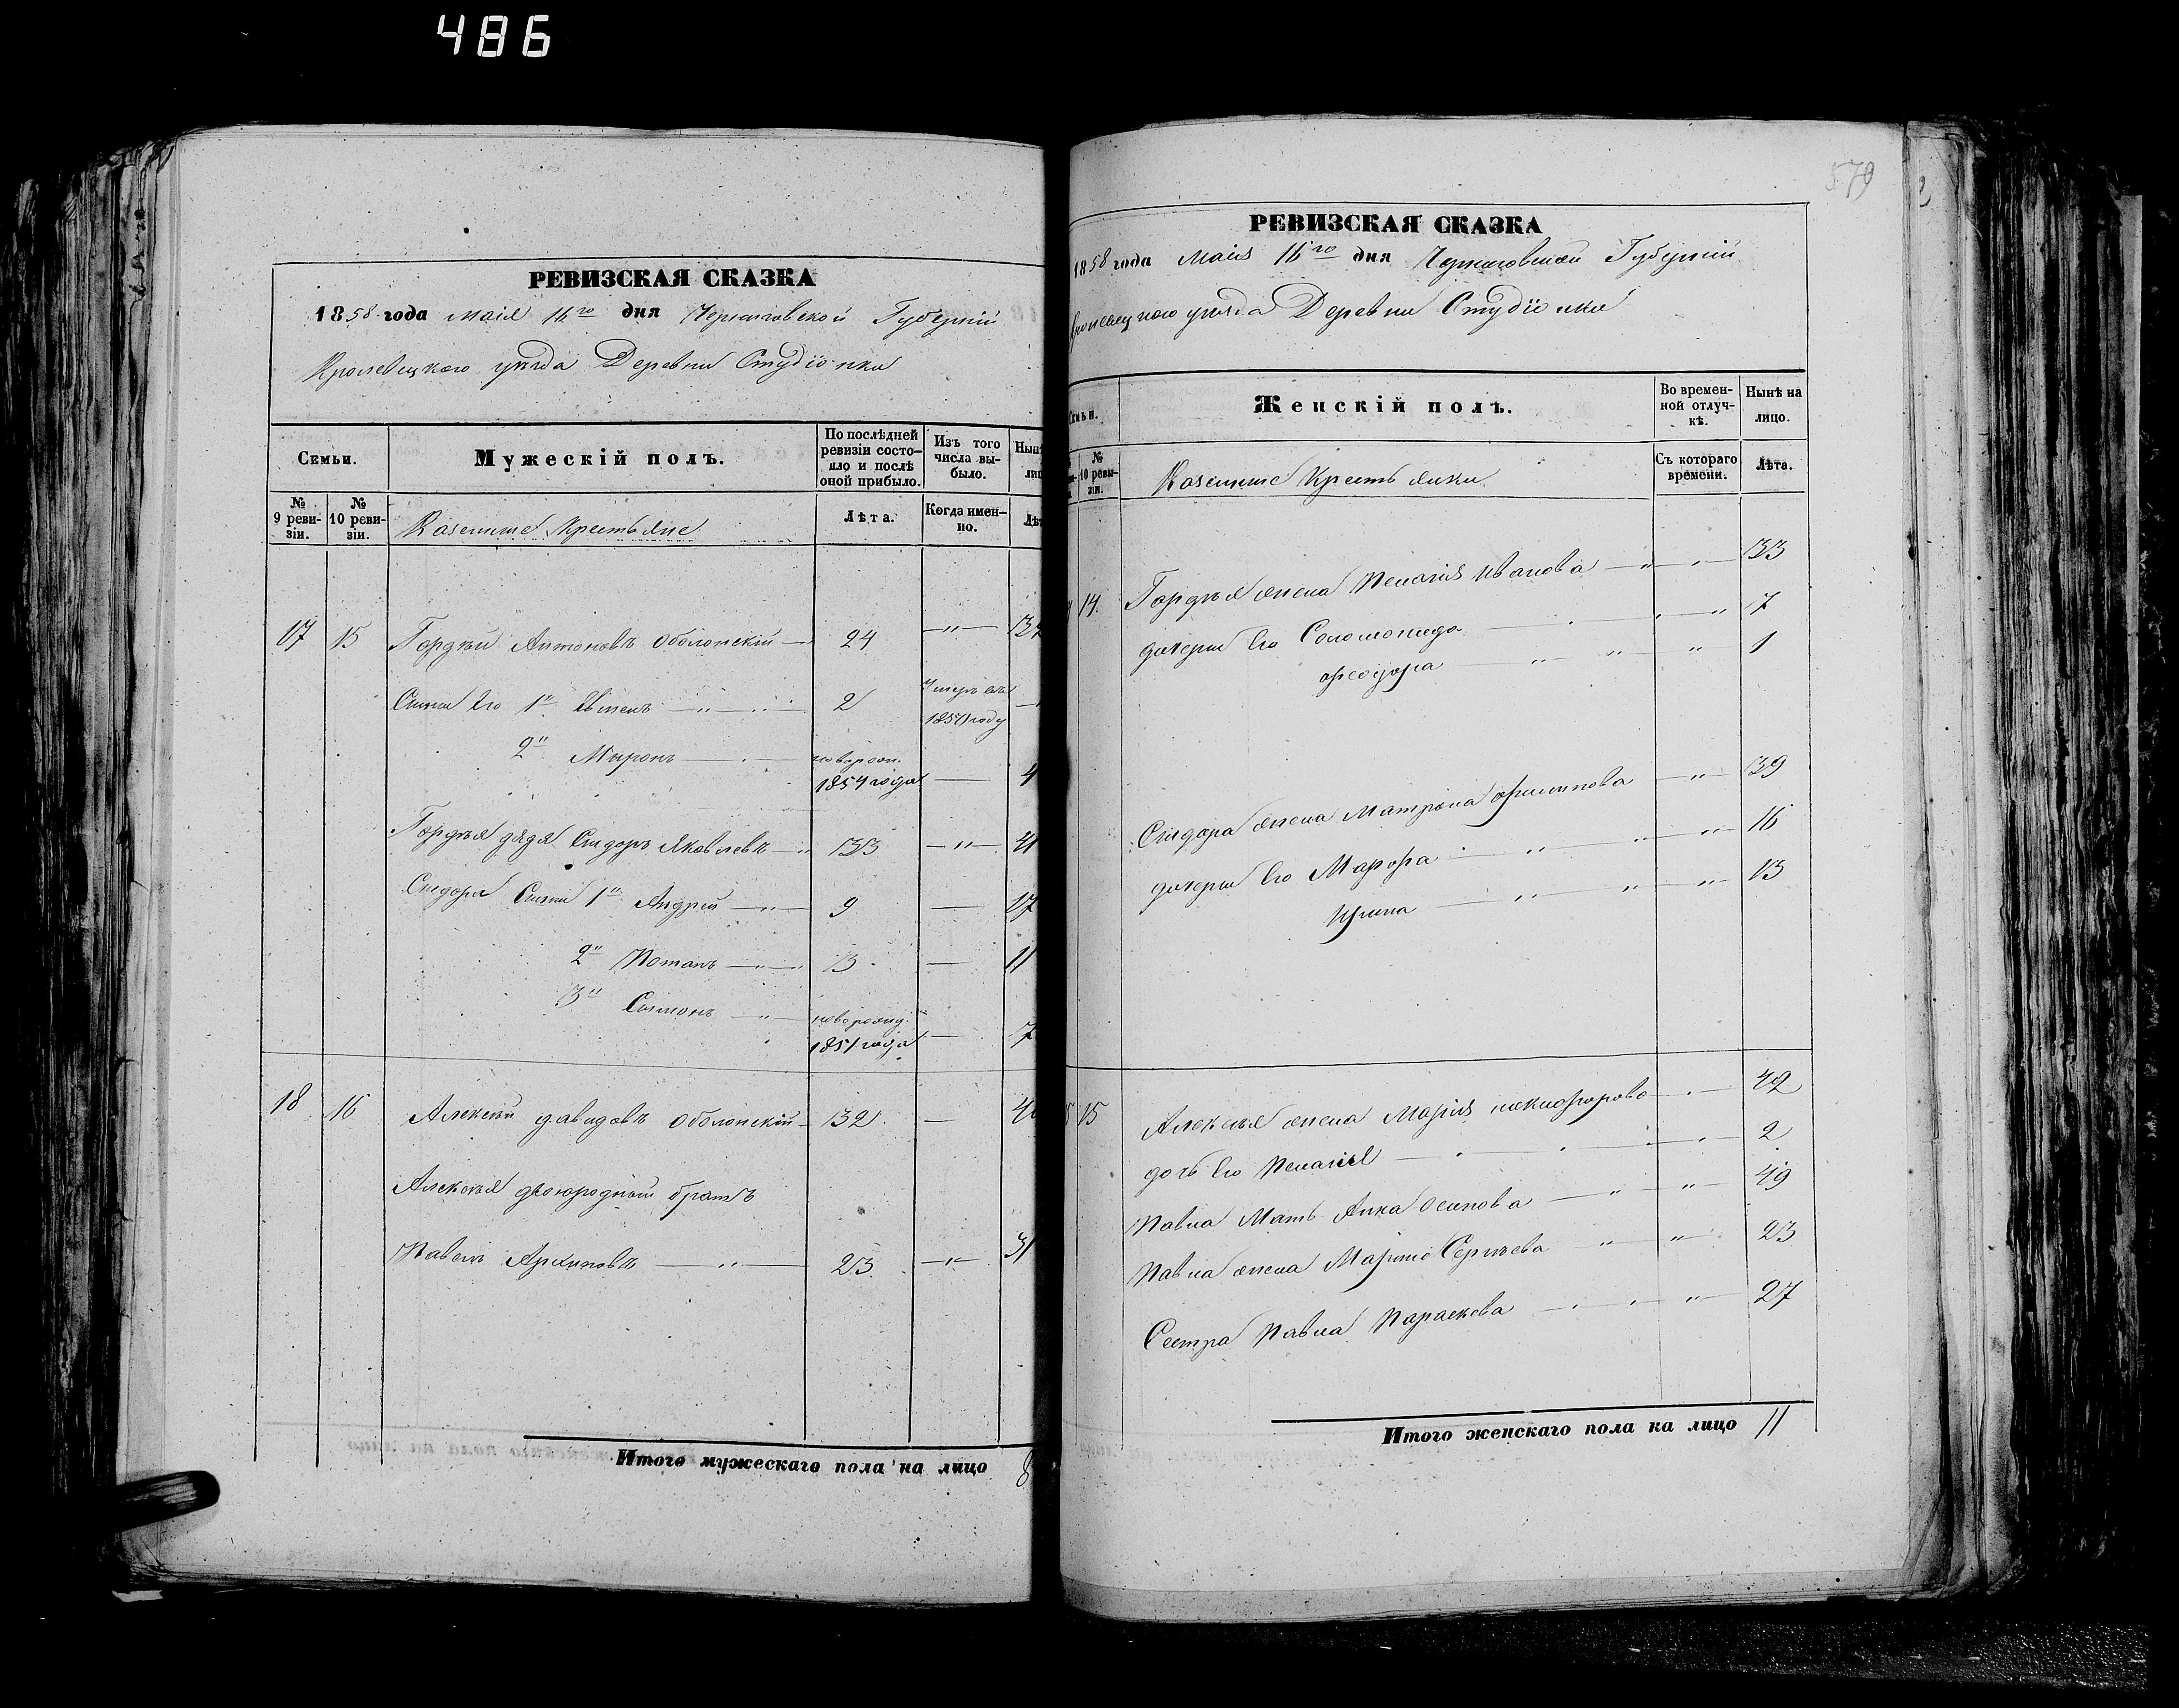 486
РЕВИЗСКАЯ СКАЗКА
1858 года маія 16го дня Черниговской Губерніи
Кролевецкого уѣзда Деревни Студіонки
Семьи.
Мужескій полъ.
По послѣдней ревизіи состояло и послѣ оной прибыло.
Изъ того числа выбыло.
№ 9 ревизіи.
№ 10 ревизіи.
Казенные Крестьяне
Лѣта.
Когда именно.
17 15 Гордѣй Антоновъ Оболонскій 24
Сыны Его 1й Евтей 2 Умеръ въ 1854 году
2й Миронъ новорож. 1854 года 4
Гордѣя дядя Сидоръ Яковлевъ 33
Сидора Сыны 1й Андрей 9 17
2й Потапъ 3 11
3й Симонъ новорожд. 1851 года 7
18 16 Алексѣй давидовъ Оболонскій 32
Алексѣя двоюродный братъ
Павелъ Архиповъ 23 31
Итого мужескаго пола на лицо 8
579
РЕВИЗСКАЯ СКАЗКА
1858 года маія 16го дня Черниговской Губерніи
Кролевецкого уѣзда Деревни Студіонки
Семьи.
Женскій полъ.
Во временной отлучкѣ.
Нынѣ на лицо.
№ 10 ревизіи.
Казенные Крестьянки
Съ котораго времени.
Лѣта.
14 Гордѣя жена Пелагія Иванова 33
дочери Его Соломонида 7
Ѳеодора 1
Сидора жена Матрона Филипова 39
дочери Его Марфа 16
Ирина 13
15 Алексѣя жена Марія никифорова 42
дочь Его Пелагія 2
Павла Мать Анна Осипова 49
Павла жена Марина Сергѣева 23
Сестра Павла Параскева 27
Итого женскаго пола на лицо 11